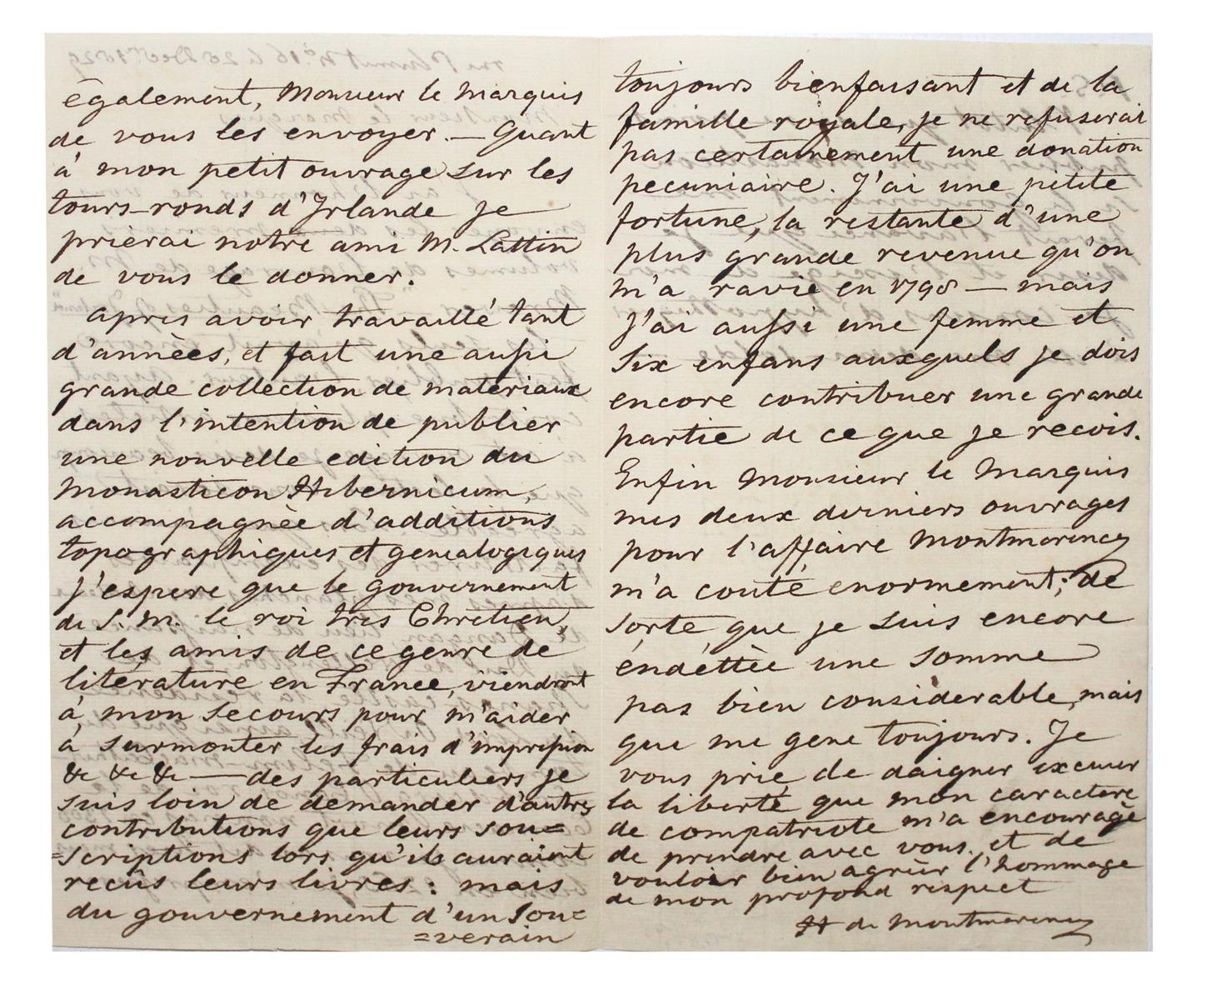 également, Monsieur le Marquis
de vous les envoyer. — Quant
à mon petit ouvrage sur les
tours-ronds d'Irlande je
prierai notre ami M. Lattin
de vous le donner.
Apres avoir travaillé tant
d'annèes, et fait une aussi
grande collection de materiaux
dans l'intention de publier
une nouvelle edition du
Monasticon Hibernicum,
accompagnèe d'additions
topographiques et genealogiques
j'espere que le gouvernement
de S. M. le roi tres Chretien,
et les amis de ce genre de
literature en France, viendront
à mon secours pour m'aider
à surmonter les frais d'impression
&c &c &c — des particuliers je
suis loin de demander d'autres
contributions que leurs sou=
=scriptions lors qu'ils auraient
recûs leurs livres: mais
du gouvernement d'un Sou=
=verain
toujours bienfaisant et de la
famille royale, je ne refuserai
pas certainement une donation
pecuniaire. J'ai une pitite
fortune, la restante d'une
plus grande revenue qu'on
m'a ravie en 1798 — mais
j'ai aussi une femme et
six enfans auxquels je dois
encore contribuer une grande
partie de ce que je recois.
Enfin Monsieur le Marquis
mes deux derniers ouvrages
pour l'affaire Montmorency
m'a couté enormement; de
sorte que je suis encore
éndéttèe une somme
pas bien considerable, mais
que me gene toujours. Je
vous prie de daigner excuser
la liberté que mon caractere
de compatriote m'a encouragè
de prendre avec vous, et de
vouloir bien agrèer l'hommage
de mon profond respect
H de Montmorency